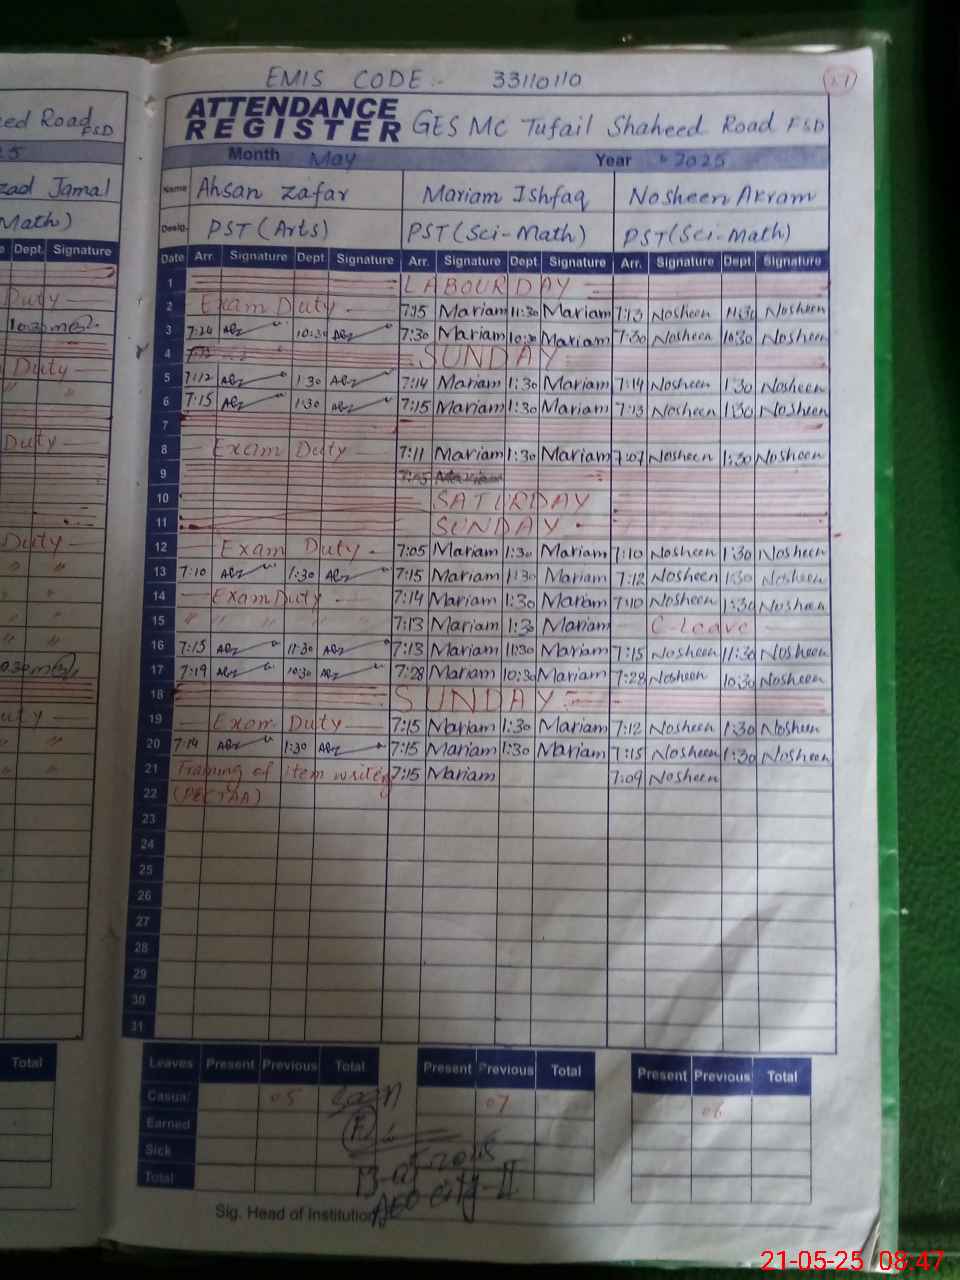 EMIS CODE :- 33110110
27
ATTENDANCE REGISTER GES MC Tufail Shaheed Road FSD
Month May Year 2025
Name Ahsan Zafar Mariam Ishfaq Nosheen Akram
Desig. PST (Arts) PST (Sci-Math) PST (Sci-Math)
Date Arr. Signature Dept. Signature Arr. Signature Dept. Signature Arr. Signature Dept. Signature
1 LABOUR DAY
2 Exam Duty 7:15 Mariam 11:30 Mariam 7:13 Nosheen 11:30 Nosheen
3 7:20 10:30 7:30 Mariam 10:30 Mariam 7:30 Nosheen 10:30 Nosheen
4 SUNDAY
5 7:12 1:30 7:14 Mariam 1:30 Mariam 7:14 Nosheen 1:30 Nosheen
6 7:15 1:30 7:15 Mariam 1:30 Mariam 7:13 Nosheen 1:30 Nosheen
7
8 Exam Duty 7:11 Mariam 1:30 Mariam 7:07 Nosheen 1:30 Nosheen
9 7:05 Mariam
10 SATURDAY
11 SUNDAY
12 Exam Duty 7:05 Mariam 1:30 Mariam 7:10 Nosheen 1:30 Nosheen
13 7:10 1:30 7:15 Mariam 1:30 Mariam 7:12 Nosheen 1:30 Nosheen
14 Exam Duty 7:14 Mariam 1:30 Mariam 7:10 Nosheen 1:30 Nosheen
15 " " " " " 7:13 Mariam 1:30 Mariam C-Leave
16 7:15 11:30 7:13 Mariam 11:30 Mariam 7:15 Nosheen 11:30 Nosheen
17 7:19 10:30 7:28 Mariam 10:30 Mariam 7:28 Nosheen 10:30 Nosheen
18 SUNDAY
19 Exam Duty 7:15 Mariam 1:30 Mariam 7:12 Nosheen 1:30 Nosheen
20 7:14 1:30 7:15 Mariam 1:30 Mariam 7:15 Nosheen 1:30 Nosheen
21 Training of item writing 7:15 Mariam 7:09 Nosheen
22 (PECTAA)
23
24
25
26
27
28
29
30
31
Leaves Present Previous Total Present Previous Total Present Previous Total
Casual 05 07 06
Earned
Sick
Total
13-05-2025
AEO City-II
Sig. Head of Institution
21-05-25 08:47